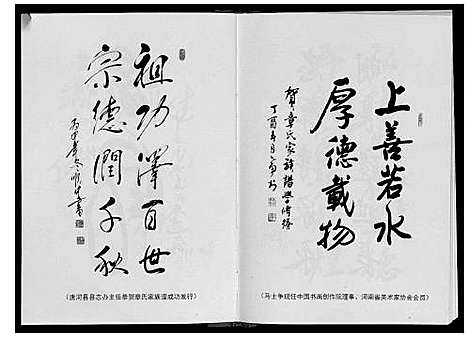 上善若水
厚德載物
賀章氏家族譜
丁酉年
(马士争现任中国书画创作院理事、河南省美术家协会会员)
祖功澤百世
宗德潤千秋
丙申年冬
(唐河县县志办主任恭贺章氏家族谱成功发行)